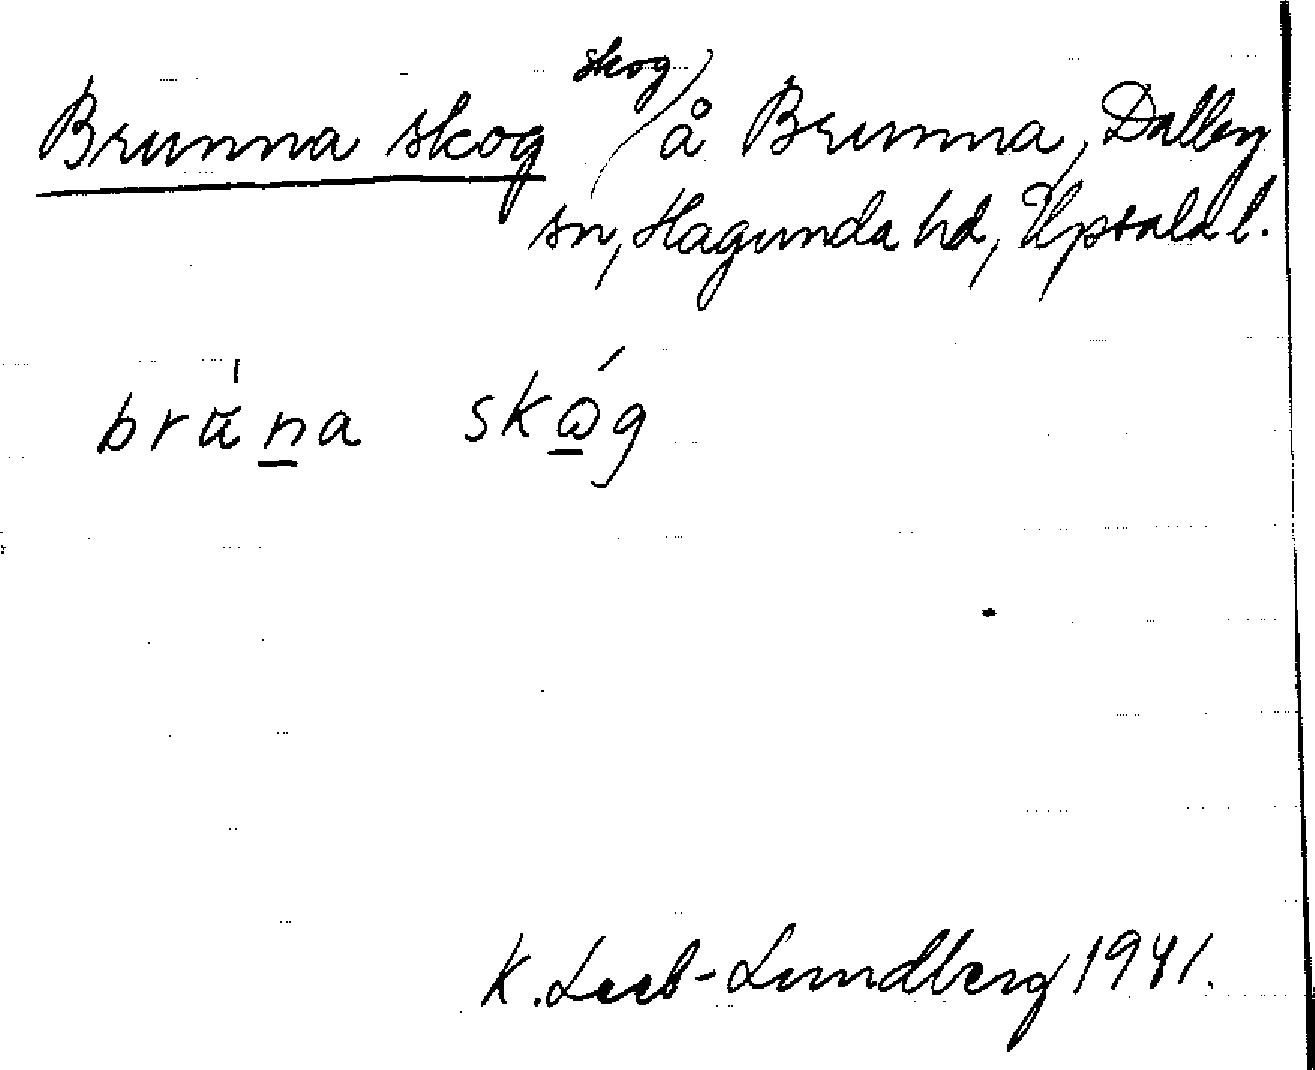 Brunna skog skog å Brunna, Dalby
sn, Hagunda hd, Upsala l.
brŭ́na skǫ́g
K. Leeb-Lundberg 1941.